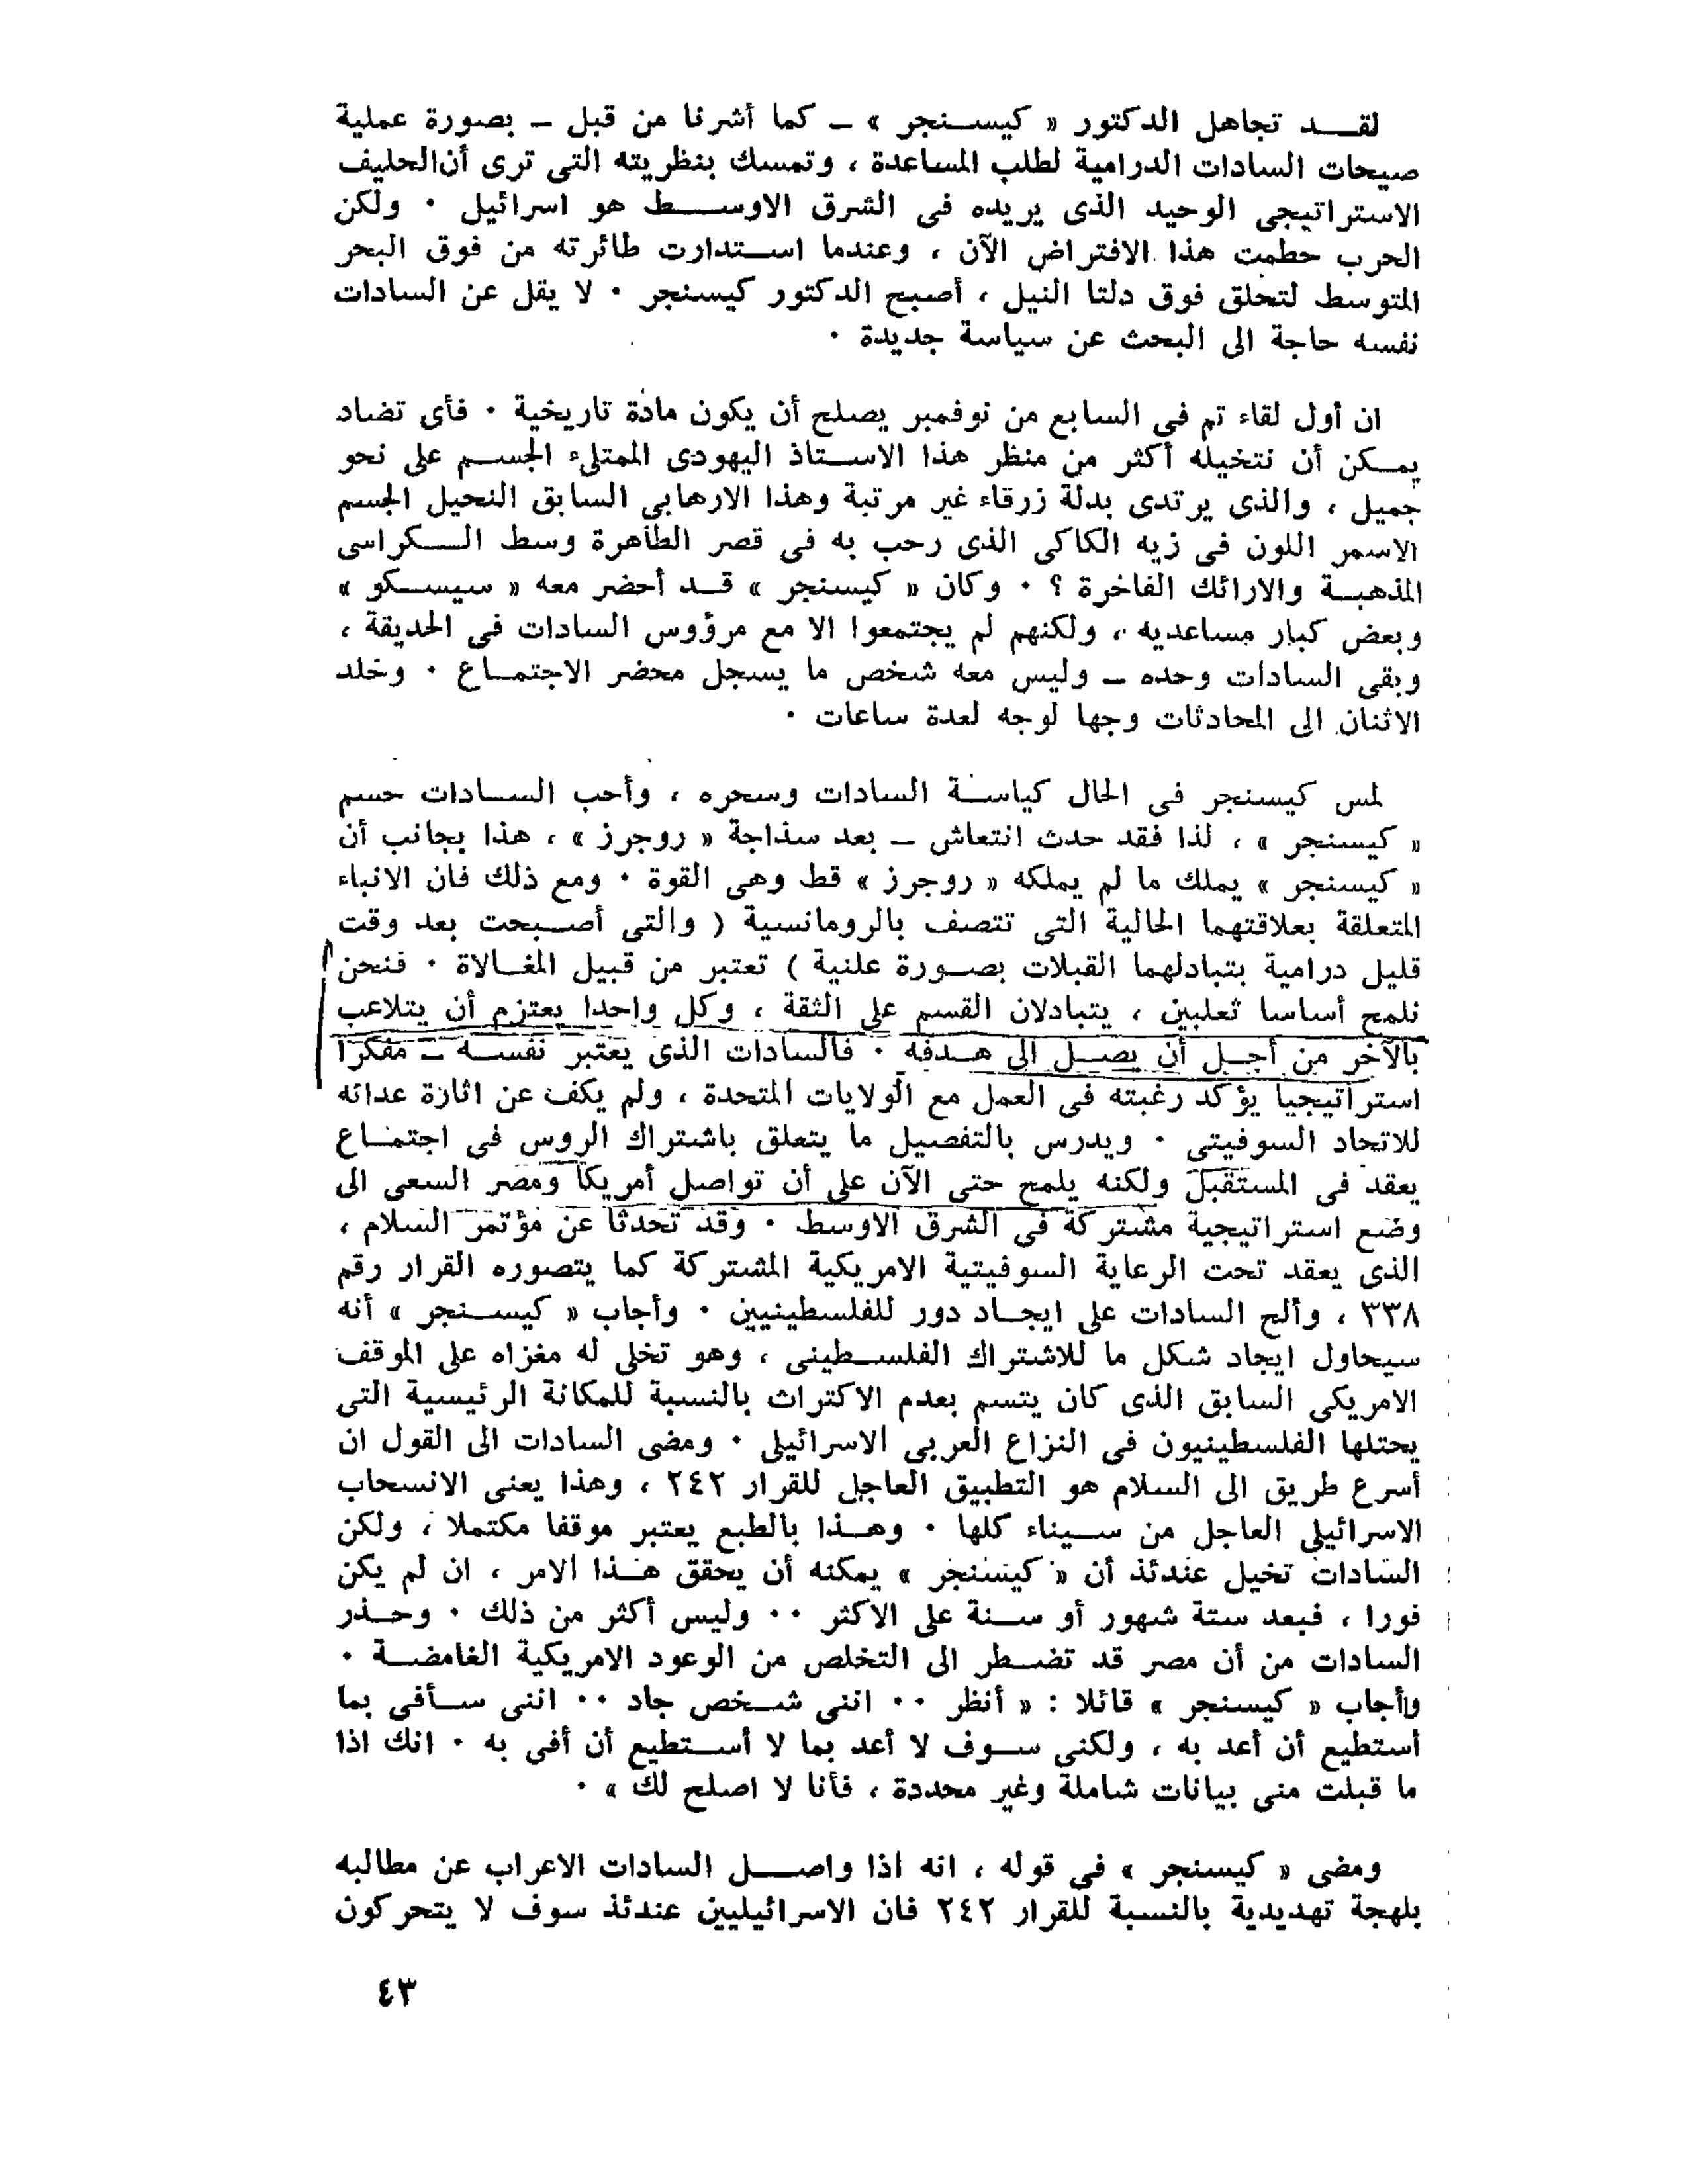 لقد تجاهل الدكتور « كيسنجر » – كما أشرنا من قبل – بصورة عملية
صيحات السادات الدرامية لطلب المساعدة ، وتمسك بنظريته التى ترى أن الحليف
الاستراتيجى الوحيد الذى يريده فى الشرق الاوسط هو اسرائيل ٠ ولكن
الحرب حطمت هذا الافتراض الآن ، وعندما استدارت طائرته من فوق البحر
المتوسط لتحلق فوق دلتا النيل ، أصبح الدكتور كيسنجر ٠ لا يقل عن السادات
نفسه حاجة الى البحث عن سياسة جديدة ٠
ان أول لقاء تم فى السابع من نوفمبر يصلح أن يكون مادة تاريخية ٠ فأى تضاد
يمكن أن نتخيله أكثر من منظر هذا الاستاذ اليهودى الممتلىء الجسم على نحو
جميل ، والذى يرتدى بدلة زرقاء غير مرتبة وهذا الارهابى السابق النحيل الجسم
الاسمر اللون فى زيه الكاكى الذى رحب به فى قصر الطاهرة وسط الكراسى
المذهبة والارائك الفاخرة ؟ ٠ وكان « كيسنجر » قد أحضر معه « سيسكو »
وبعض كبار مساعديه ، ولكنهم لم يجتمعوا الا مع مرؤوس السادات فى الحديقة ،
وبقى السادات وحده – وليس معه شخص ما يسجل محضر الاجتماع ٠ وخلد
الاثنان الى المحادثات وجها لوجه لعدة ساعات ٠
لمس كيسنجر فى الحال كياسة السادات وسحره ، وأحب السادات حسم
« كيسنجر » ، لذا فقد حدث انتعاش – بعد سذاجة « روجرز » ، هذا بجانب أن
« كيسنجر » يملك ما لم يملكه « روجرز » قط وهى القوة ٠ ومع ذلك فان الانباء
المتعلقة بعلاقتهما الحالية التى تتصف بالرومانسية ( والتى أصبحت بعد وقت
قليل درامية بتبادلهما القبلات بصورة علنية ) تعتبر من قبيل المغالاة ٠ فنحن
نلمح أساسا ثعلبين ، يتبادلان القسم على الثقة ، وكل واحدا يعتزم أن يتلاعب
بالآخر من أجل أن يصل الى هدفه ٠ فالسادات الذى يعتبر نفسه – مفكرا
استراتيجيا يؤكد رغبته فى العمل مع الولايات المتحدة ، ولم يكف عن اثارة عدائه
للاتحاد السوفيتى ٠ ويدرس بالتفصيل ما يتعلق باشتراك الروس فى اجتماع
يعقد فى المستقبل ولكنه يلمح حتى الآن على أن تواصل أمريكا ومصر السعى الى
وضع استراتيجية مشتركة فى الشرق الاوسط ٠ وقد تحدثا عن مؤتمر السلام ،
الذى يعقد تحت الرعاية السوفيتية الامريكية المشتركة كما يتصوره القرار رقم
٣٣٨ ، وألح السادات على ايجاد دور للفلسطينيين ٠ وأجاب « كيسنجر » أنه
سيحاول ايجاد شكل ما للاشتراك الفلسطينى ، وهو تخلى له مغزاه على الموقف
الامريكى السابق الذى كان يتسم بعدم الاكتراث بالنسبة للمكانة الرئيسية التى
يحتلها الفلسطينيون فى النزاع العربى الاسرائيلى ٠ ومضى السادات الى القول ان
أسرع طريق الى السلام هو التطبيق العاجل للقرار ٢٤٢ ، وهذا يعنى الانسحاب
الاسرائيلى العاجل من سيناء كلها ٠ وهذا بالطبع يعتبر موقفا مكتملا ، ولكن
السادات تخيل عندئذ أن « كيسنجر » يمكنه أن يحقق هذا الامر ، ان لم يكن
فورا ، فبعد ستة شهور أو سنة على الاكثر ٠٠ وليس أكثر من ذلك ٠ وحذر
السادات من أن مصر قد تضطر الى التخلص من الوعود الامريكية الغامضة ٠
وأجاب « كيسنجر » قائلا : « أنظر ٠٠ اننى شخص جاد ٠٠ اننى سأفى بما
أستطيع أن أعد به ، ولكنى سوف لا أعد بما لا أستطيع أن أفى به ٠ انك اذا
ما قبلت منى بيانات شاملة وغير محددة ، فأنا لا اصلح لك » ٠
ومضى « كيسنجر » فى قوله ، انه اذا واصل السادات الاعراب عن مطالبه
بلهجة تهديدية بالنسبة للقرار ٢٤٢ فان الاسرائيليين عندئذ سوف لا يتحركون
٤٣